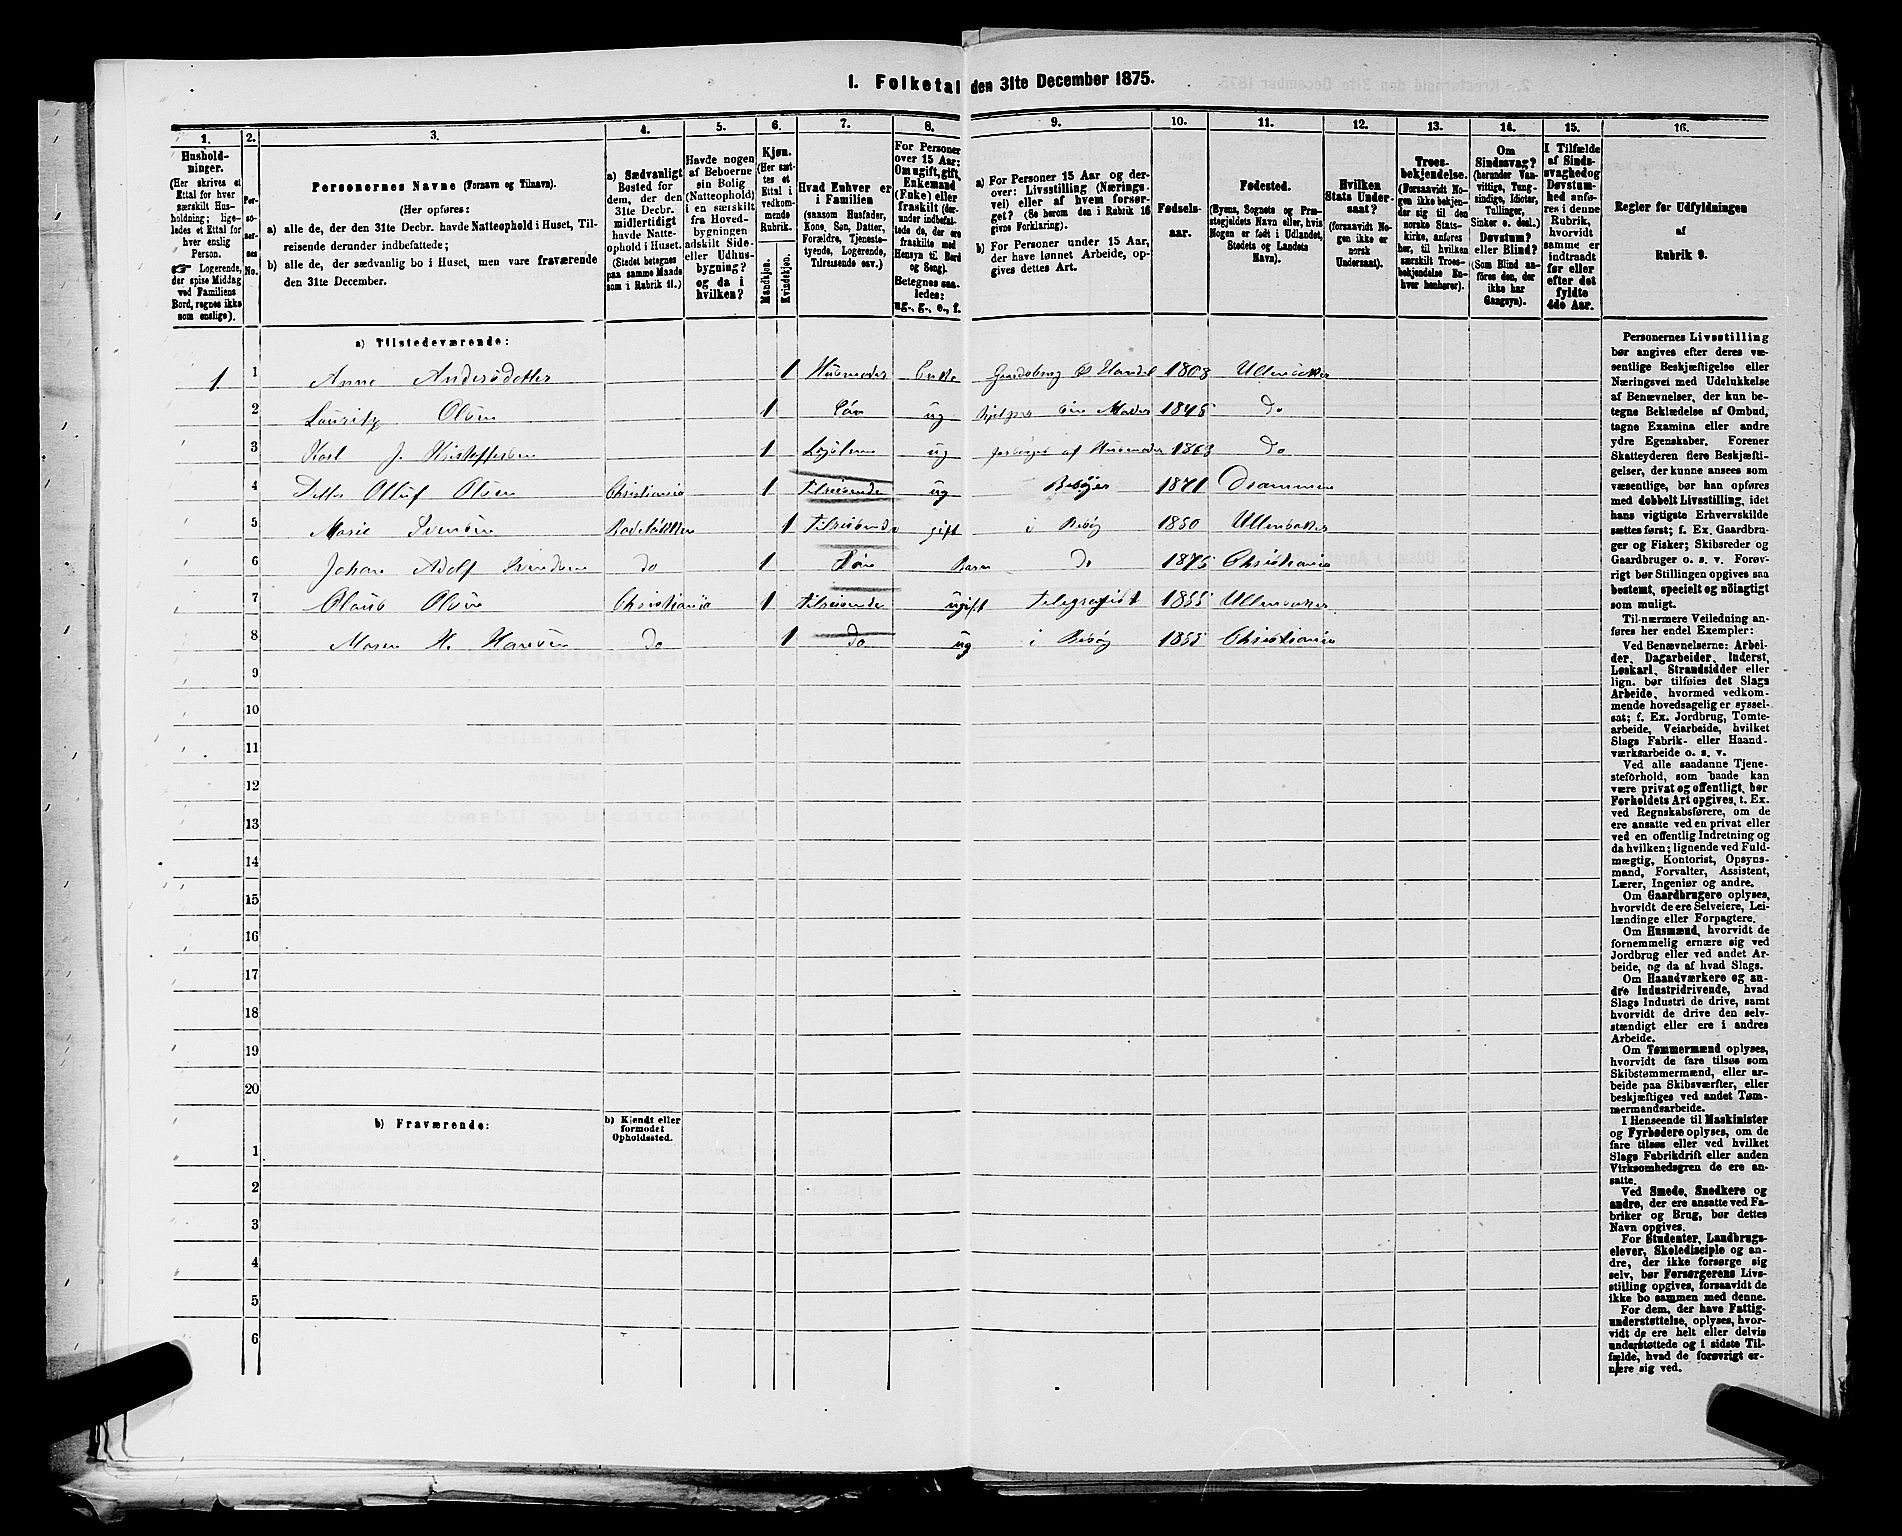 1. Folketal den 31te December 1875.
1. 2. 3. 4. 5. 6. 7. 8. 9. 10. 11. 12. 13. 14. 15. 16.
Husholdninger.
(Her skrives et Ettal for hver særskilt Husholdning; ligeledes et Ettal for hver enslig Person.
☞ Logerende, der spise Middag ved Familiens Bord, regnes ikke som enslige).
Personernes No.
Personernes Navne (Fornavn og Tilnavn).
(Her opføres:
a) alle de, der den 31te Decbr. havde Natteophold i Huset, Tilreisende derunder indbefattede;
b) alle de, der sædvanlig bo i Huset, men vare fraværende den 31te December.
a) Sædvanligt Bosted for dem, der den 31te Decbr. midlertidigt havde Natteophold i Huset.
(Stedet betegnes paa samme Maade som i Rubrik 11.)
Havde nogen af Beboerne sin Bolig (Natteophold) i en særskilt fra Hovedbygningen adskilt Side- eller Udhusbygning? og da i hvilken?
Kjøn.
(Her sættes et Ettal i vedkommende Rubrik.
Mandkjøn. Kvindekjøn.
Hvad Enhver er i Familien
(saasom Husfader, Kone, Søn, Datter, Forældre, Tjenestetyende, Logerende, Tilreisende osv.)
For Personer over 15 Aar: Om ugift, gift, Enkemand (Enke) eller fraskilt (derunder indbefattede de, der ere fraskilte med Hensyn til Bord og Seng).
Betegnes saaledes: ug., g., e., f.
a) For Personer 15 Aar og derover: Livsstilling (Næringsvei) eller af hvem forsørget? (Se herom den i Rubrik 16 givne Forklaring).
b) For Personer under 15 Aar, der have lønnet Arbeide, opgives dettes Art.
Fødselsaar.
Fødested.
(Byens, Sognets og Præstegjeldets Navn eller, hvis Nogen er født i Udlandet, Stedets og Landets Navn).
Hvilken Stats Undersaat?
(forsaavidt Nogen ikke er norsk Undersaat).
Troesbekjendelse.
(Forsaavidt Nogen ikke bekjender sig til den norske Statskirke, anføres her, til hvilken særskilt Troesbekjendelse Enhver henhører).
Om Sindssvag? (herunder Vanvittige, Tungsindige, Idioter, Tullinger, Sinker o. desl.)
Døvstum? eller Blind? (Som Blind anføres den, der ikke har Gangsyn).
I Tilfælde af Sindssvaghed og Døvstumhed anføres i denne Rubrik, hvorvidt samme er indtraadt før eller efter det fyldte 4de Aar.
Regler for Udfyldningen af Rubrik 9.
a) Tilstedeværende:
1 1 Anne Andersdatter 1 Husmoder Enke Gaardbrug & Handel 1808 Ullensaker
2 Lauritz Olsen 1 Søn ug Hjelper sin Moder 1845 do
3 Karl J. Kristoffersen 1 ug forsørges af Husmoder 1863 do
4 Olsen Christiania 1 tilreisende ug Besøger 1871 Drammen
5 Marie Svensen 1 tilreisende gift i Besøg 1850 Ullensaker
6 Johan Adolf Svendsen do 1 Søn Barn do 1875 Christiania
7 Olaus Olsen Christiania 1 tilreisende ugift Telegrafist 1855 Ullensaker
8 Maren H. Hansen do 1 do ug i Besøg 1855 Christiania
9
10
11
12
13
14
15
16
17
18
19
20
b) Fraværende:
b) Kjendt eller formodet Opholdssted.
1
2
3
4
5
6
Personernes Livsstilling
bør angives efter deres væ-
sentlige Beskjæftigelse eller
Næringsvei med Udelukkelse
af Benævnelser, der kun be-
tegne Beklædelse af Ombud,
tagne Examina eller andre
ydre Egenskaber. Forener
Skatteyderen flere Beskjæfti-
gelser, der kunne ansees som
væsentlige, bør han opføres
med dobbelt Livsstilling, idet
hans vigtigste Erhvervskilde
sættes først; f. Ex. Gaardbru-
ger og Fisker; Skibsreder og
Gaardbruger o. s. v. Forøv-
rigt bør Stillingen opgives saa
bestemt, specielt og nöiagtigt
som muligt.
Til nærmere Veiledning an-
føres her endel Exempler:
Ved Benævnelserne: Arbei-
der, Dagarbeider, Inderst,
Løskarl, Strandsidder eller
lign. bør tilføies det Slags
Arbeide, hvormed vedkom-
mende hovedsagelig er syssel-
sat; f. Ex. Jordbrug, Tomte-
arbeide, Veiarbeide, hvilket
Slags Fabrik- eller Haand-
værksarbeide o. s. v.
Ved alle saadanne Tjene-
steforhold, som baade kan
være privat og offentligt, bør
Forholdets Art opgives, t. Ex.
ved Regnskabsførere, om de
ere ansatte ved en privat eller
ved en offentlig Indretning og
da hvilken; lignende ved Fuld-
mægtig, Kontorist, Opsyns-
mand, Forvalter, Assistent,
Lærer, Ingeniør og andre.
Om Gaardbrugere oplyses,
hvorvidt de ere Selveiere, Lei-
lændinge eller Forpagtere.
Om Husmænd, hvorvidt de
fornemmelig ernære sig ved
Jordbrug eller ved andet Ar-
beide, og da af hvad Slags.
Om Haandværkere og an-
dre Industridrivende, hvad
Slags Industri de drive, samt
hvorvidt de drive den selv-
stændigt eller ere i andres
Arbeide.
Om Tømmermænd oplyses,
hvorvidt de fare tilsøs som
Skibstømmermænd, eller ar-
beide paa Skibsværfter, eller
beskjæftiges ved andet Tøm-
mermandsarbeide.
I Henseende til Maskinister
og Fyrbødere oplyses, om de
fare tilsøs eller ved hvilket
Slags Fabrikdrift eller anden
Virksomhedsgren de ere an-
satte.
Ved Smede, Snedkere og
andre, der ere ansatte ved Fa-
briker og Brug, bør dettes
Navn opgives.
For Studenter, Landbrugs-
elever, Skoledisciple og an-
dre, der ikke forsørge sig
selv, bør Forsørgerens Livs-
stilling opgives, forsaavidt de
ikke bo sammen med denne.
For dem, der have Fattig-
understøttelse, oplyses, hvor-
vidt de ere helt eller delvis
understøttede og i sidste Til-
fælde, hvad de forøvrigt er-
nære sig ved.